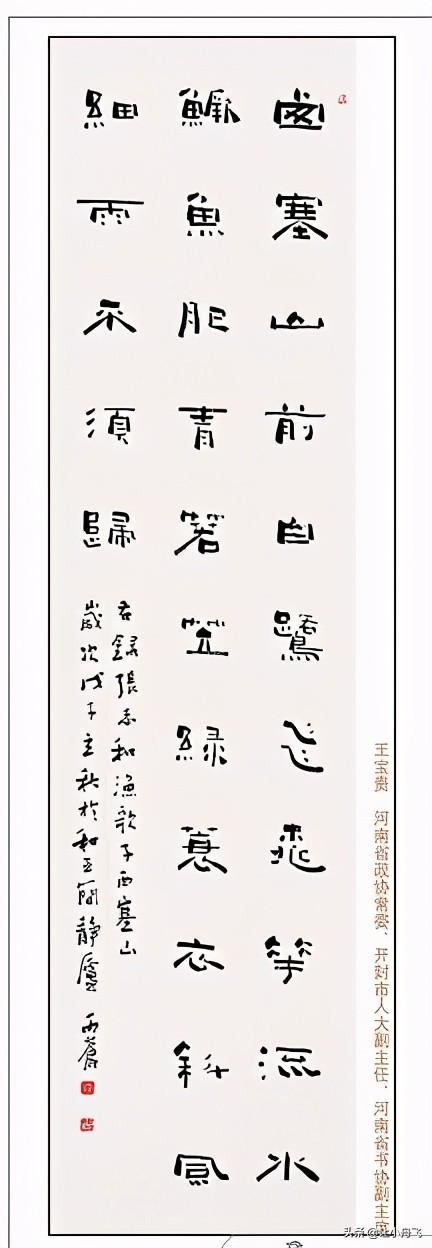 西塞山前白鷺飛桃華流水
鱖魚肥青箬笠綠蓑衣斜風
細雨不須歸
右錄張志和漁歌子西塞山
歲次戊子立秋於和玉靜廬
王宝贵 河南省政协常委、开封市人大副主任、河南省书协副主席
头条 @小舟飞